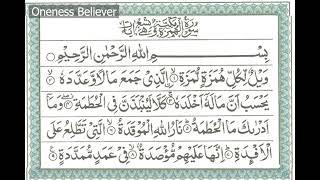 Oneness Believer
سورة الهمزة مكية وهي تسع آيات
بِسْمِ اللهِ الرَّحْمٰنِ الرَّحِيْمِ
وَيْلٌ لِّكُلِّ هُمَزَةٍ لُّمَزَةِ ۙ﴿۱﴾ الَّذِيْ جَمَعَ مَالًا وَّعَدَّدَهٗ ۙ﴿۲﴾
يَحْسَبُ اَنَّ مَالَهٗٓ اَخْلَدَهٗ ۚ﴿۳﴾ كَلَّا لَيُنْۢبَذَنَّ فِي الْحُطَمَةِ ۖ﴿۴﴾ وَمَآ
اَدْرٰىكَ مَا الْحُطَمَةُ ؕ﴿۵﴾ نَارُ اللهِ الْمُوْقَدَةُ ۙ﴿۶﴾ الَّتِيْ تَطَّلِعُ عَلَى
الْاَفْئِدَةِ ؕ﴿۷﴾ اِنَّهَا عَلَيْهِمْ مُّؤْصَدَةٌ ۙ﴿۸﴾ فِيْ عَمَدٍ مُّمَدَّدَةٍ ﴿۹﴾